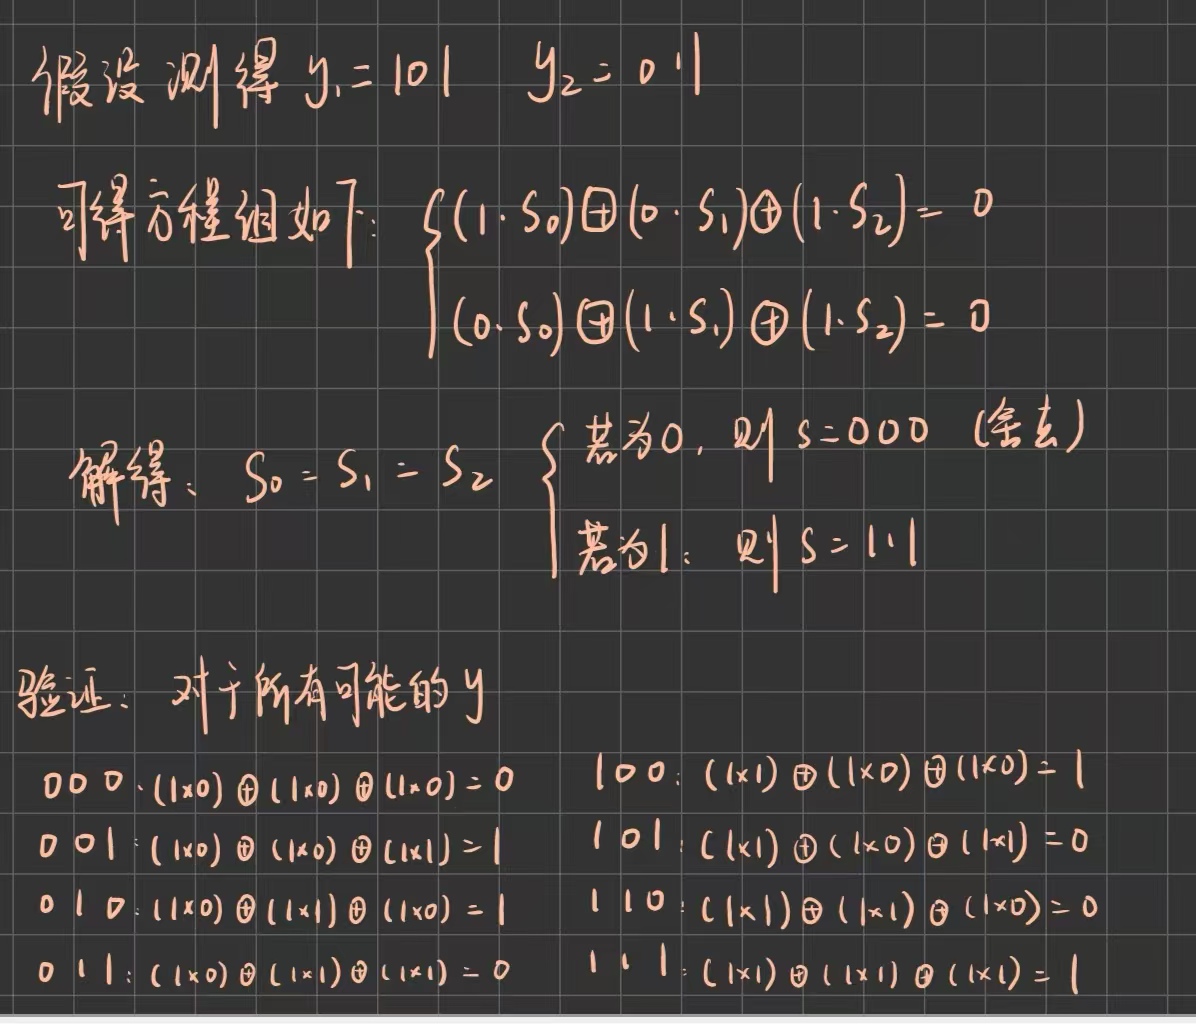 假设测得 y₁=101 y₂=011
可得方程组如下: {(1·S₀)⊕(0·S₁)⊕(1·S₂)=0
(0·S₀)⊕(1·S₁)⊕(1·S₂)=0
解得: S₀=S₁=S₂ {若为0, 则 S=000 (舍去)
若为1: 则 S=111
验证: 对于所有可能的 y
000:(1×0)⊕(1×0)⊕(1×0)=0 100:(1×1)⊕(1×0)⊕(1×0)=1
001:(1×0)⊕(1×0)⊕(1×1)=1 101:(1×1)⊕(1×0)⊕(1×1)=0
010:(1×0)⊕(1×1)⊕(1×0)=1 110:(1×1)⊕(1×1)⊕(1×0)=0
011:(1×0)⊕(1×1)⊕(1×1)=0 111:(1×1)⊕(1×1)⊕(1×1)=1